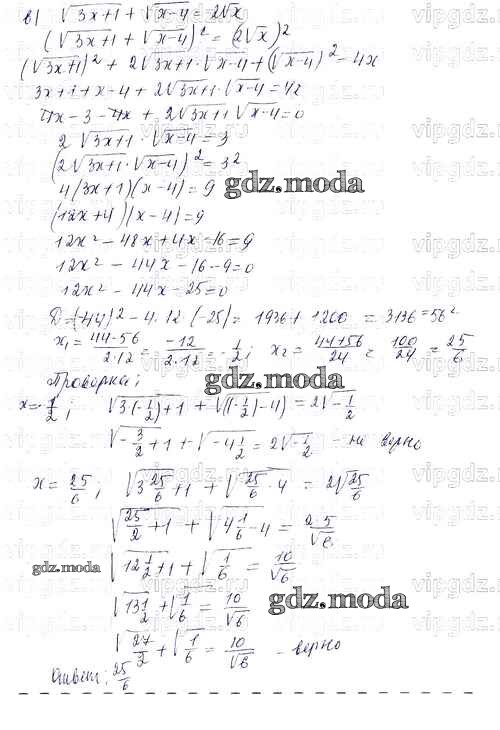 в) √3x+1 + √x-4 = 2√x
(√3x+1 + √x-4)² = (2√x)²
(√3x+1)² + 2√3x+1 · √x-4 + (√x-4)² = 4x
3x+1+x-4 + 2√3x+1 · √x-4 = 4x
4x-3-4x + 2√3x+1 √x-4 = 0
2√3x+1 · √x-4 = 3
(2√3x+1 · √x-4)² = 3²
4(3x+1)(x-4) = 9
gdz.moda
(12x+4)(x-4) = 9
12x² - 48x + 4x - 16 = 9
12x² - 44x - 16 - 9 = 0
12x² - 44x - 25 = 0
D = (-44)² - 4·12·(-25) = 1936 + 1200 = 3136 = 56²
x₁ = 44-56/2·12 = -12/2·12 = -1/2; x₂ = 44+56/24 = 100/24 = 25/6
Проверка;
gdz.moda
x = -1/2; √3(-1/2)+1 + √((-1/2)-4) = 2√-1/2
√-3/2+1 + √-4 1/2 = 2√-1/2 - не верно
x = 25/6; √3 25/6+1 + √25/6-4 = 2√25/6
√25/2+1 + √4 1/6-4 = 2·5/√6
gdz.moda
√12 1/2+1 + √1/6 = 10/√6
gdz.moda
√13 1/2 + √1/6 = 10/√6
√27/2 + √1/6 = 10/√6 - верно
Ответ: 25/6
vipgdz.ru